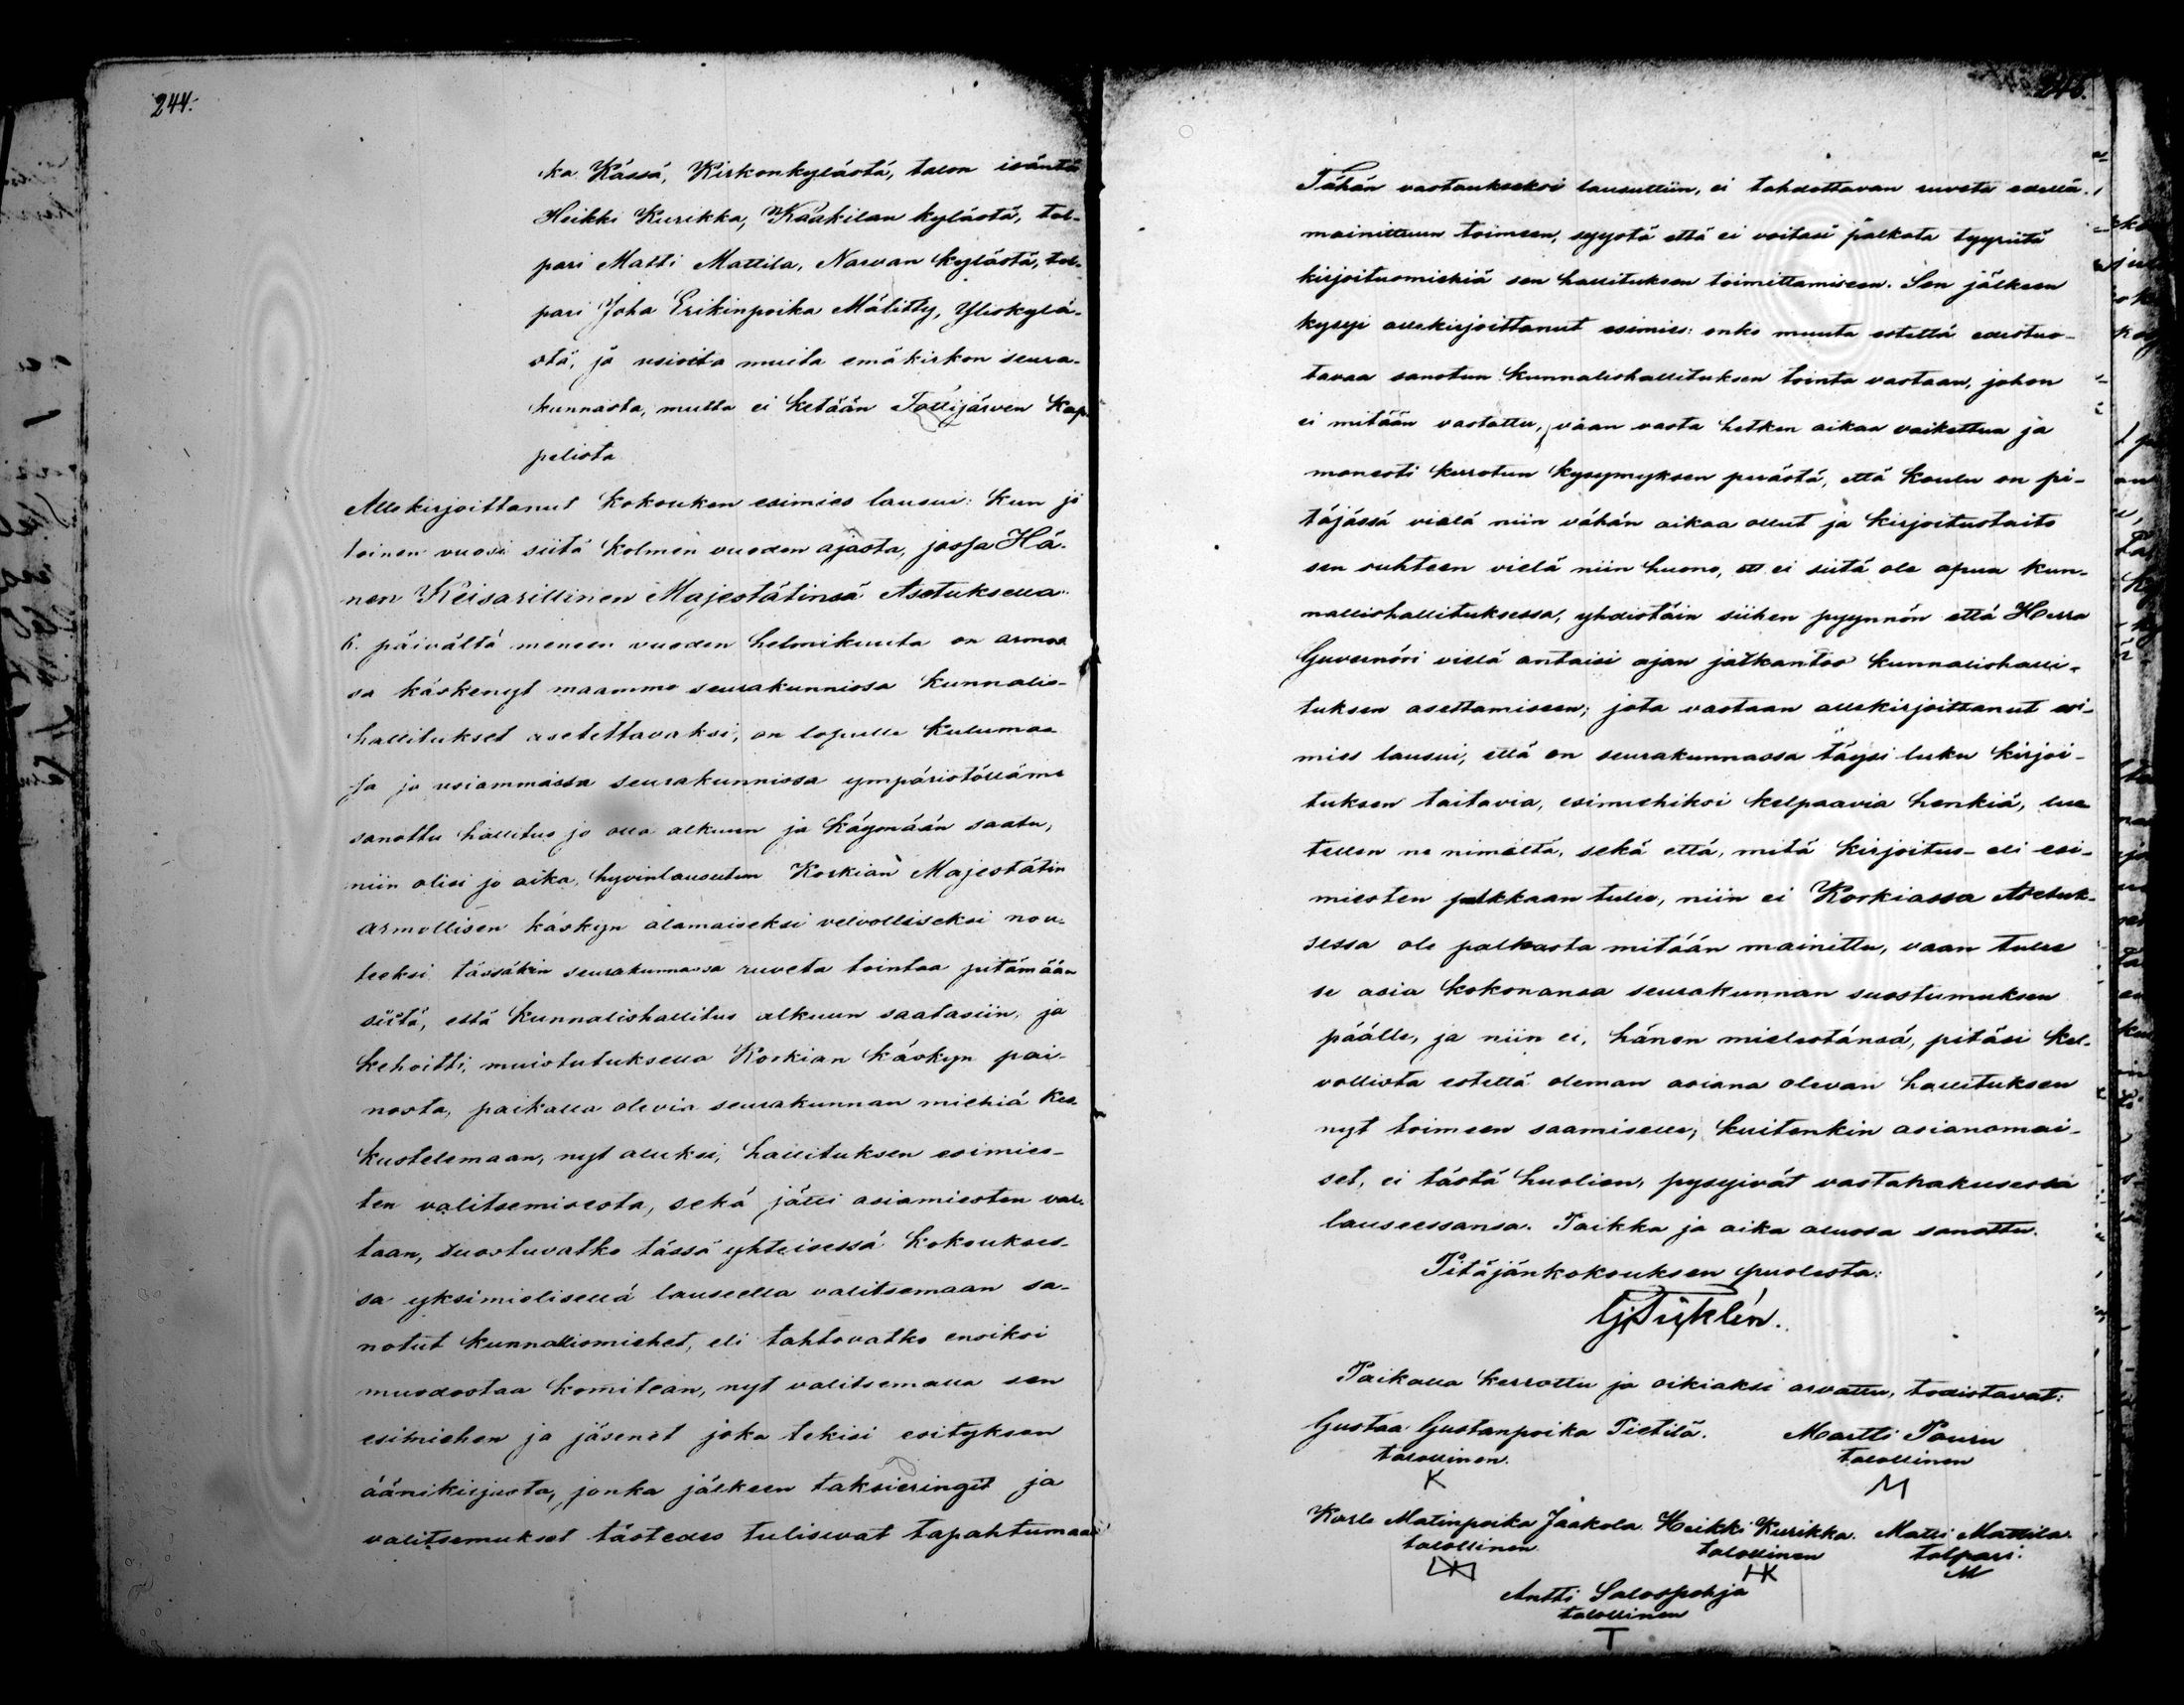 244.
ka Kässä, Kirkonkylästä, talon isäntä
Heikki Kurikka, Kaakilan kylästä, tol-
pari Matti Mattila, Narvan kylästä, tol-
pari Joha Erikinpoika Mälitty, Yliskylä-
stä, ja usioita muita emäkirkon seura-
kunnasta, mutta ei ketään Tottijärven Kap-
pelista
Allekirjoittanut Kokouksen esimies lausui: Kun jo
toinen vuosi siitä Kolmen vuoden ajasta, jossa Hä-
nen Keisarillinen Majestätinsä Asetuksella
6. päivältä menneen vuoden helmikuuta on armos-
sa käskenyt maamme seurakunnissa Kunnalis-
hallitukset asetettavaksi, on lopulle kulumas-
sa ja usiammassa seurakunnissa ympäristöllämme
sanottu hallitus jo olla alkuun ja käymään saatu,
niin olisi jo aika, hyvinlausutun Korkian Majestätin
armollisen käskyn alamaiseksi velvolliseksi nou-
teeksi tässäkin seurakunnassa ruveta tointaa pitämään
siitä, että Kunnalishallitus alkuun saatasiin, ja
kehoitti, muistutuksella Korkian käskyn pai-
nosta, paikalla olevia seurakunnan miehiä Kes-
kustelemaan, nyt aluksi, hallituksen esimies-
ten valitsemisesta, sekä jätti asiamiesten vas-
taan, suostuvatko tässä yhteisessä Kokoukses-
sa yksimielisellä lauseella valitsemaan sa-
notut Kunnallismiehet, eli tahtovatko ensiksi
muodostaa komitean, nyt valitsemalla sen
esimiehen ja jäsenet joka tekisi esityksen
äänikirjasta, jonka jälkeen taksieringit ja
valitsemukset tästedes tulisivat tapahtumaan
245.
Tähän vastaukseksi lausuttiin, ei tahdottavan ruveta edellä-
mainittuun toimeen, syystä että ei voitasi palkata tyyriitä
kirjoitusmiehiä sen hallituksen toimittamiseen. Sen jälkeen
kysyi allekirjoittanut esimies: onko muuta estettä edestuo-
tavaa sanotun Kunnalishallituksen tointa vastaan, johon
ei mitään vastattu, vaan vasta hetken aikaa vaikettua ja
monesti kerrotun kysymyksen perästä, että koulu on pi-
täjässä vielä niin vähän aikaa ollut ja kirjoitustaito
sen suhteen vielä niin huono, ett ei siitä ole apua kun-
nallishallituksessa, yhdistäin siihen pyynnön että Herra
Guvernöri vielä antaisi ajan jatkantoo kunnalishalli-
tuksen asettamiseen; jota vastaan allekirjoittanut esi-
mies lausui, että on seurakunnassa täysi luku kirjoi-
tuksen taitavia, esimiehiksi kelpaavia henkiä, lue-
tellen ne nimeltä, sekä että, mitä kirjoitus- eli esi-
miesten palkkaan tulee, niin ei Korkiassa Asetuk-
sessa ole palkasta mitään mainittu, vaan tulee
se asia kokonansa seurakunnan suostumuksen
päälle, ja niin ei, hänen mielestänsä, pitäsi kel-
vollista estettä oleman asiana olevan hallituksen
nyt toimeen saamiselle; kuitenkin asianomai-
set, ei tästä huolien, pysyivät vastahakusessa
lauseessansa. Paikka ja aika alussa sanottu.
Pitäjänkokouksen puolesta:
Paikalla kerrottu ja oikiaksi arvattu, todistavat:
Gustaa Gustanpoika Pietilä. Martti Pouru
talollinen. talollinen
K M
Karle Matinpoika Jaakola Heikki Kurikka. Matti Mattila.
talollinen talollinen tolpari.
HK M
Antti Salospohja
talollinen
T